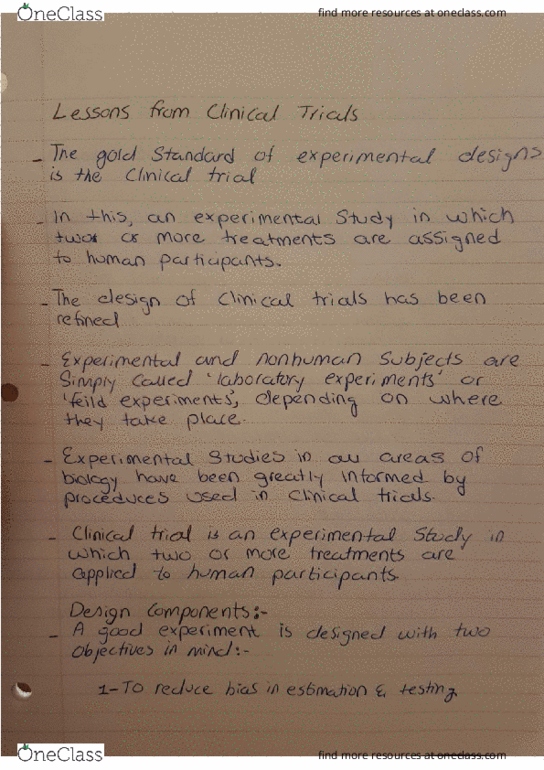 OneClass
find more resources at oneclass.com
Lessons from Clinical Trials
- The gold Standard of experimental designs
is the Clinical trial
- In this, an experimental Study in which
twor or more treatments are assigned
to human participants.
- The design of Clinical trials has been
refined
- Experimental and nonhuman Subjects are
Simply Called 'laboratory experiments' or
'feild experiments', depending on where
they take place.
- Experimental Studies in all areas of
biology have been greatly informed by
proceduces used in clinical trials.
- Clinical trial is an experimental Study in
which two or more treatments are
applied to human participants
Design Components:-
- A good experiment is designed with two
objectives in mind:-
1- To reduce bias in estimation & testing.
OneClass
find more resources at oneclass.com